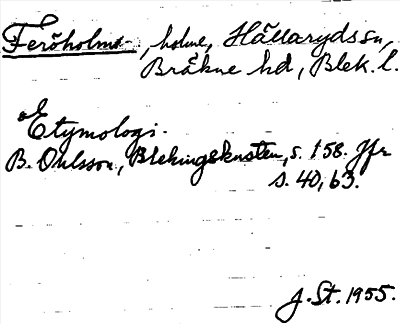 Feröholm-, holme, Hällarydssn,
Bräkne hd, Blek. l.
Etymologi.
B. Ohlsson, Blekingskusten, s. 158. Jfr
s. 40, 63.
J. St. 1955.